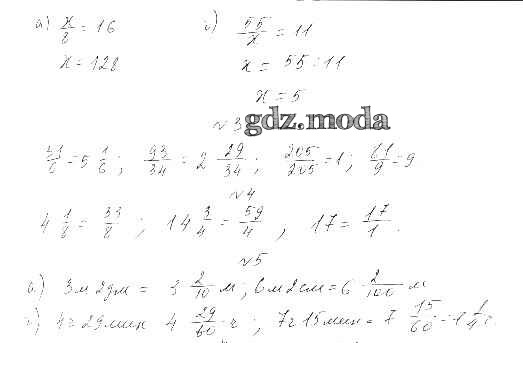 а) x/8 = 16 б) 55/x = 11
x = 128 x = 55 : 11
x = 5
№3
gdz.moda
= 5 1/8 ; 93/34 = 2 29/34 ; 205/205 = 1 ; 81/9 = 9
№4
4 1/8 = 33/8 ; 14 3/4 = 59/4 ; 17 = 17/1 .
№5
3м 2дм = 3 2/10 м ; 6м 2см = 6 2/100 м
29мин 4 29/60 ч ; 7ч 15мин = 7 15/60